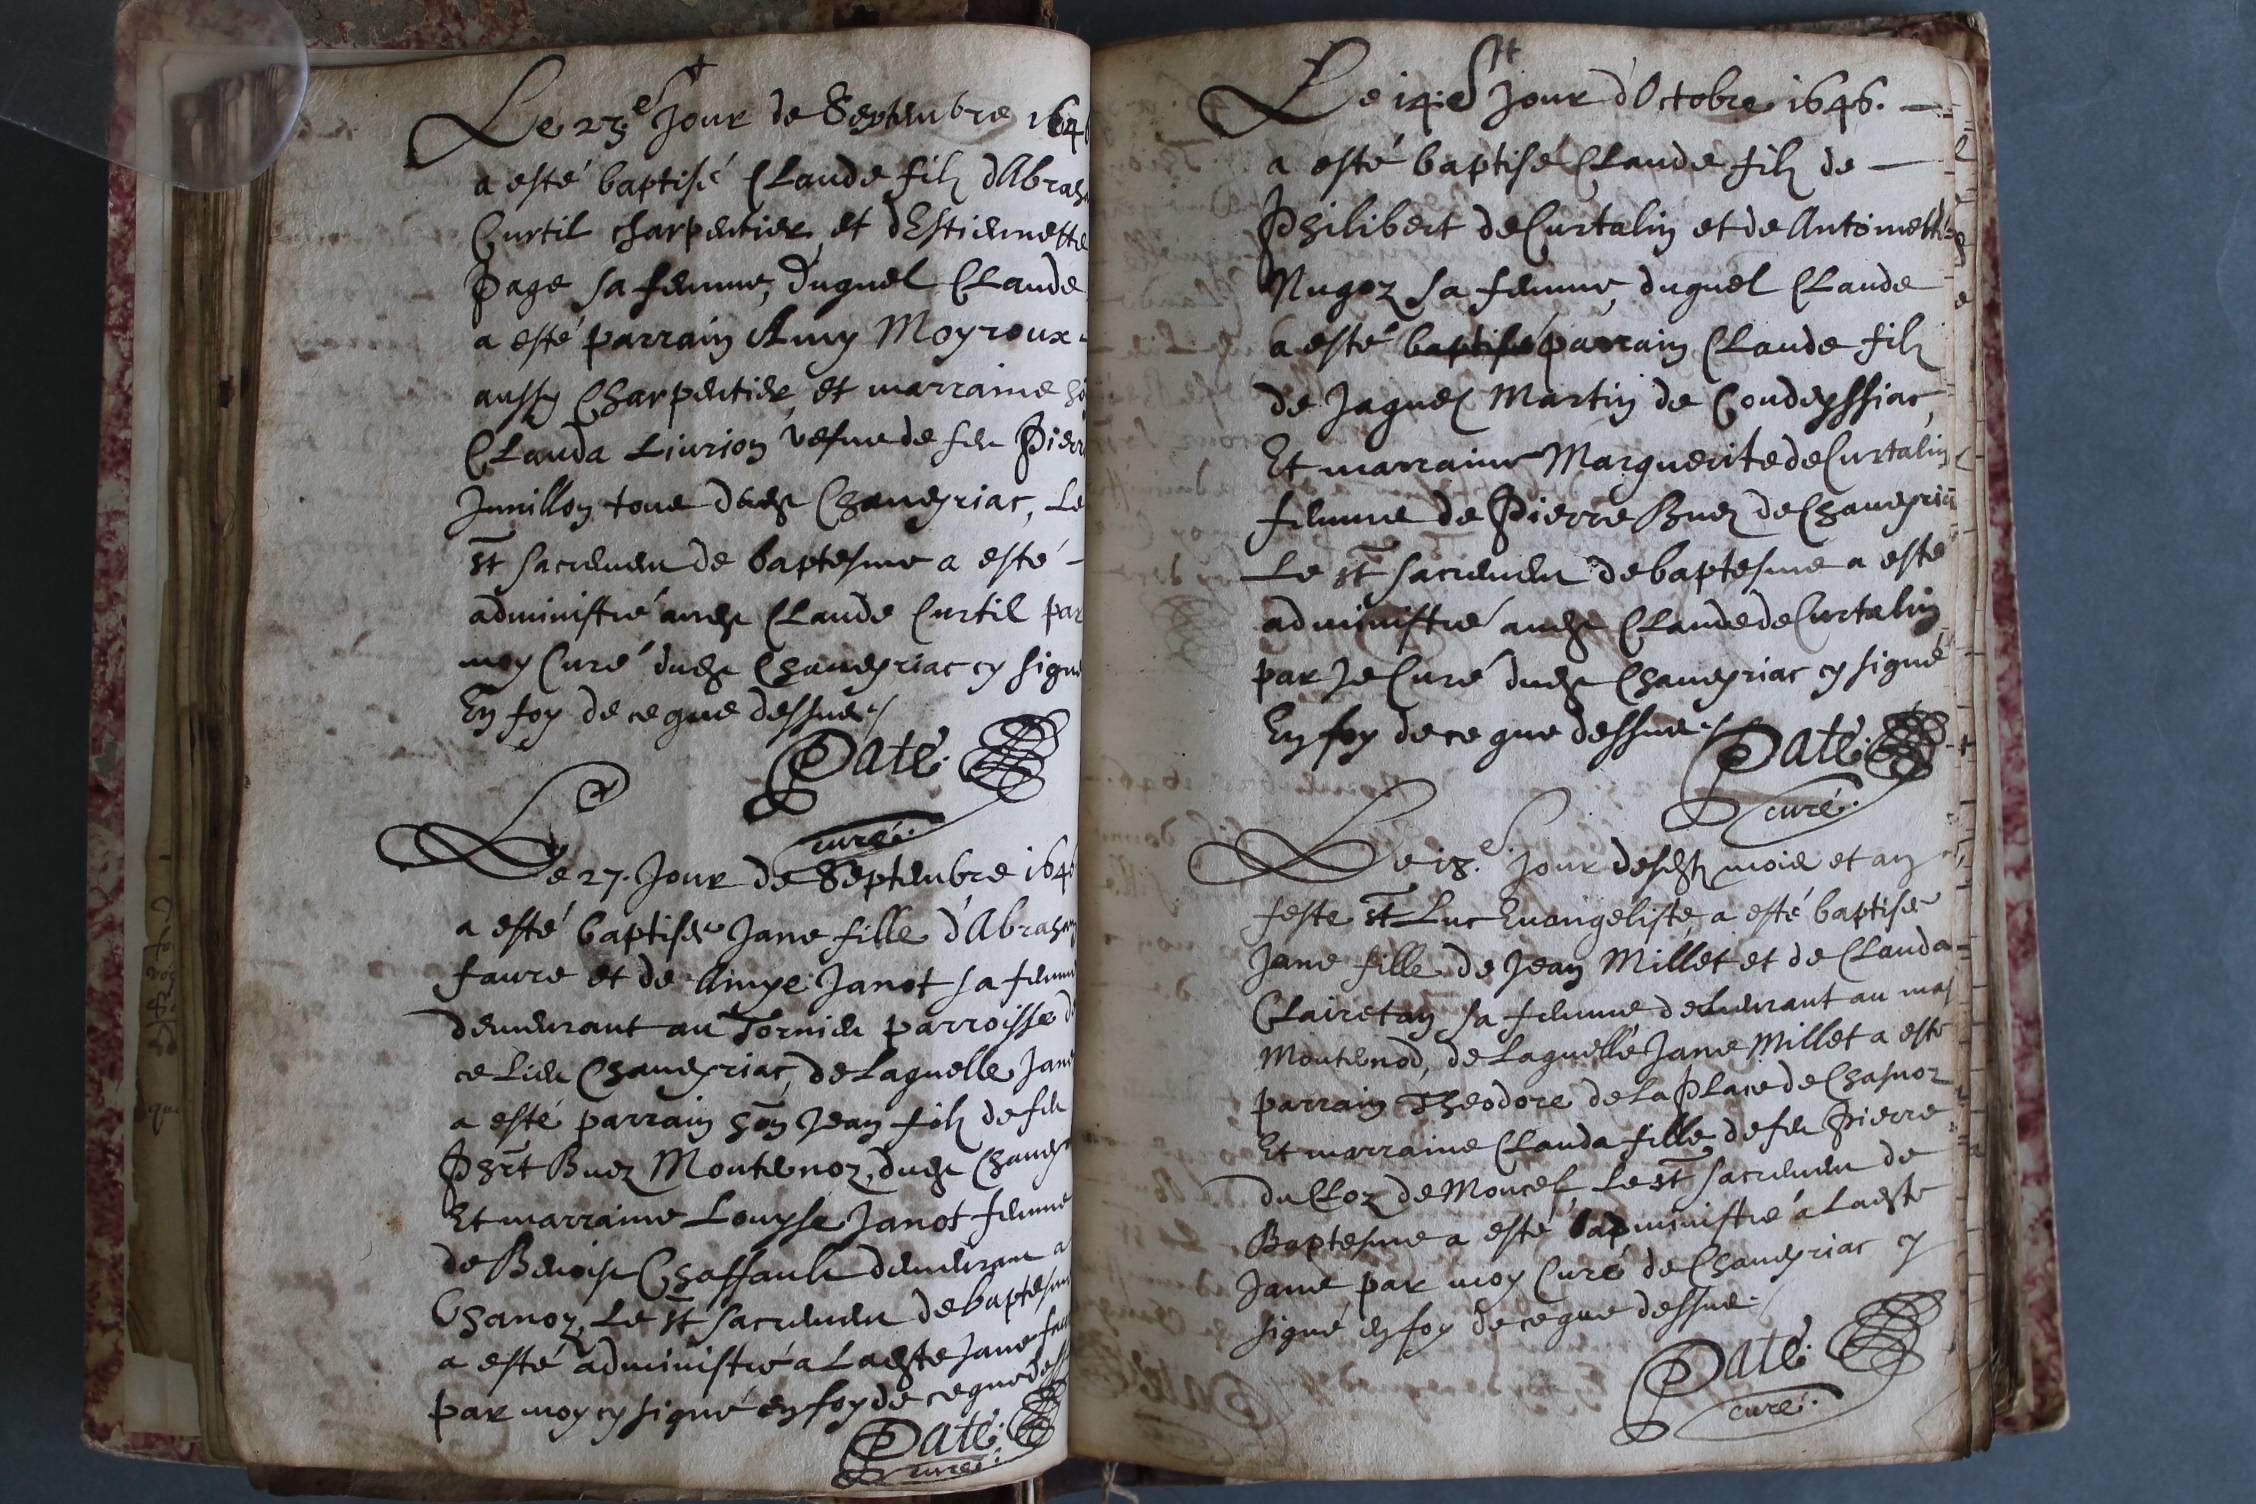 Le 23.e Jour de Septembre 164
a esté baptisé Claude filz d'Abrah
Curtil charpentier et d'Estiennette
Page sa femme, duquel Claude
a esté parrain Amy Moyroux
aussy Charpentier, et marraine ho
Clauda Liurion vefue de feu Pierr
Junillon tous dudt Chaueyriac, Le
St sacrement de baptesme a esté
administré audt Claude Curtil par
moy Curé dudt Chaueyriac cy signé
En foy de ce que dessus./
Daté.
curé.
Le 27. Jour de Septembre 164
a esté baptisée Jane fille d'Abraham
faure et de Amye Janot sa femme
demeurant au Tornieu parroisse d
ce Lieu Chaueyriac, de Laquelle Jane
a esté parrain hon Jean filz de feu
Phrt Buez Montenoz, dudt Chauey
Et marraine Louyse Janot femme
de Benoist Chaffault demeurant a
Chanoz, Le St sacrement de baptesm
a esté administré a Ladte Jane fau
par moy cy signé en foy de ce que dess
Daté.
curé.
Le 14.e Jour d'Octobre 1646.
a esté baptisé Claude filz de
Philibert de Curtalin et de Antoinette
Nugoz sa femme, duquel Claude
a esté baptisé parrain Claude filz
de Jaques Martin de Condeyssiac,
Et marraine Marguerite de Curtalin
femme de Pierre Buez de Chaueyria
Le St sacrement de baptesme a esté
administré audt Claude de Curtalin
par Je Curé dudt Chaueyriac cy signé
En foy de ce que dessus./
Daté.
curé.
Le 18.e Jour desdts mois et an
feste St Luc Euangeliste, a esté baptisée
Jane fille de Jean Millet et de Clauda
Clairetan sa femme demeurant au mas
Montenod, de Laquelle Jane Millet a esté
parrain Theodore de La Place de Chasnoz
Et marraine Clauda fille de feu Pierre
du Cloz de Moncel, Le St sacrement de
Baptesme a esté administré a Ladte
Jane par moy Curé de Chaueyriac cy
signé en foy de ce que dessus./
Daté.
curé.